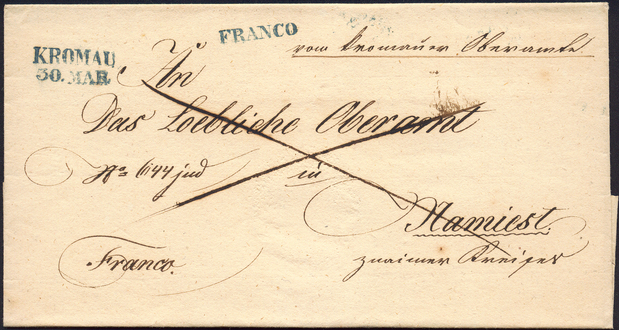 FRANCO
vom Kromauer Oberamte
KROMAU
30. MAR.
An
Das Loebliche Oberamt
No 644 jud
in
Namiest.
Franco.
znaimer Kreises